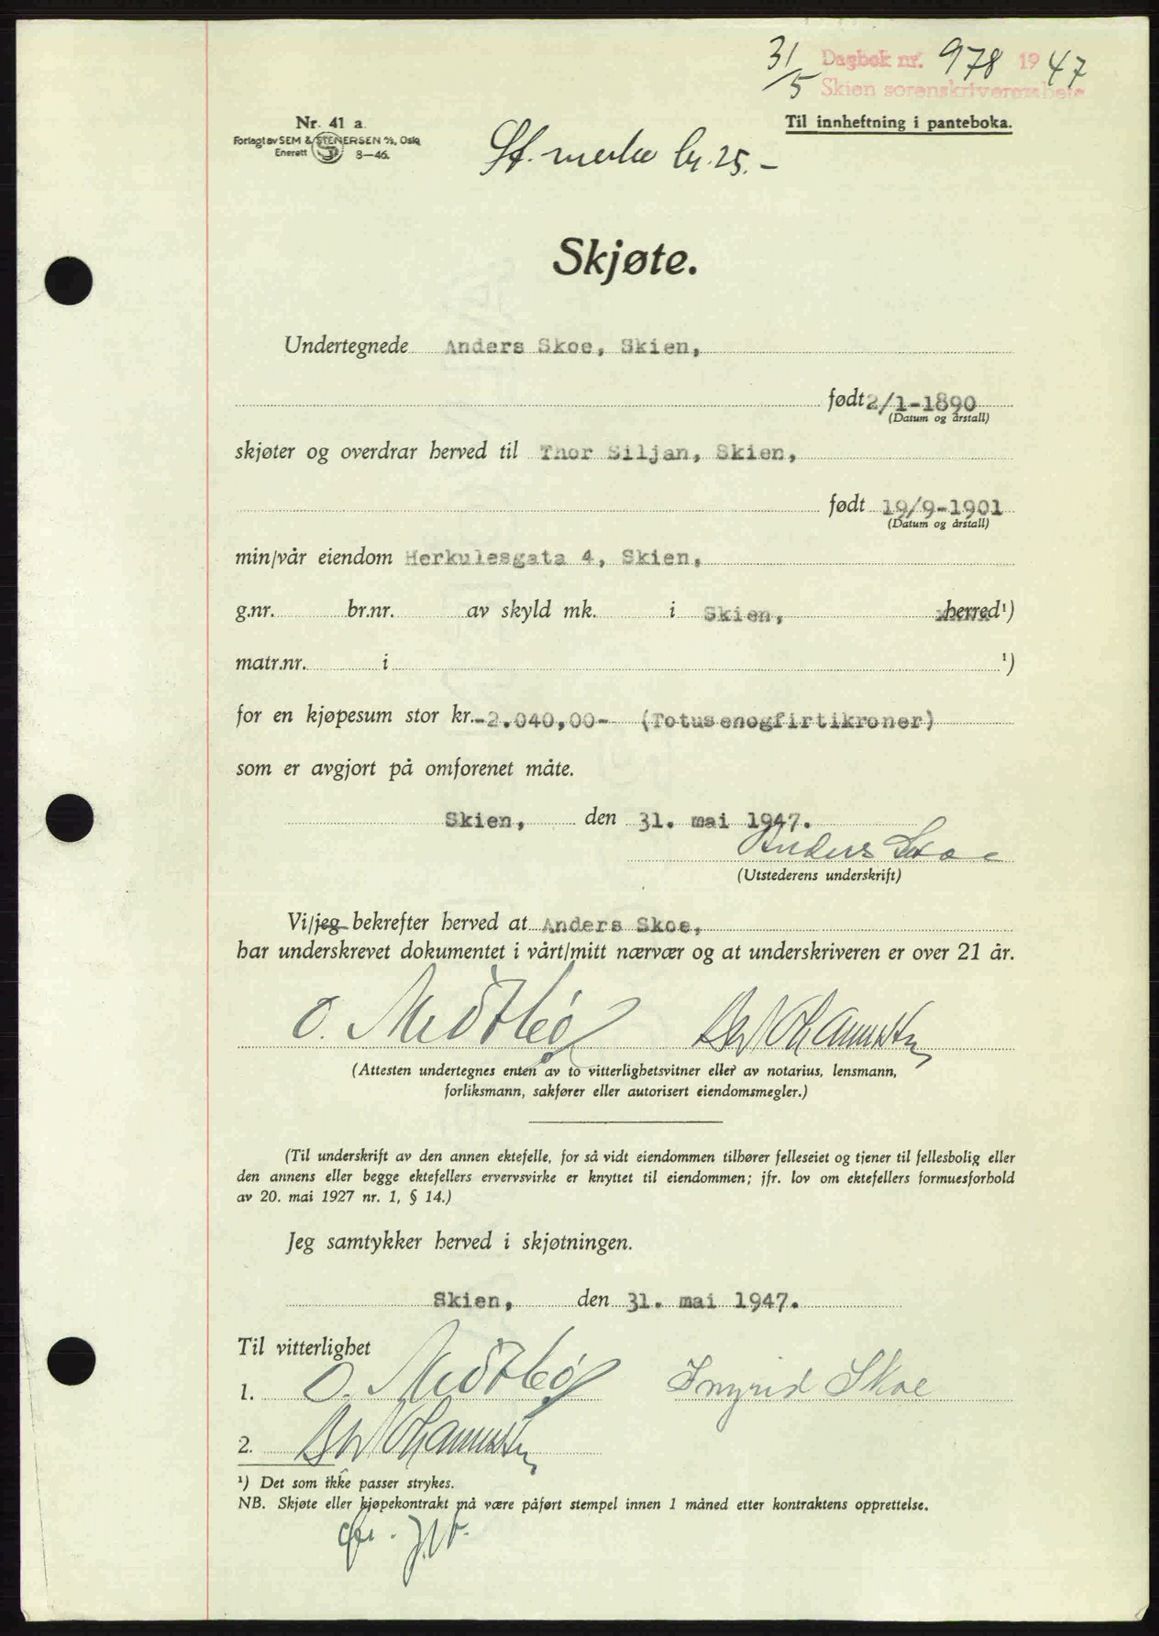 31/5 Dagbok nr. 978 1947
Skien sorenskriverembete
Til innheftning i panteboka.
Nr. 41 a.
Forlagt av SEM & STENERSEN A/S, Oslo
Enerett 8-46.
St. merke kr. 25.-
Skjøte.
Undertegnede Anders Skoe, Skien,
født 2/1-1890
(Datum og årstall)
skjøter og overdrar herved til Thor Siljan, Skien,
født 19/9-1901
(Datum og årstall)
min/vår eiendom Herkulesgata 4, Skien,
g.nr. br.nr. av skyld mk. i Skien, herred ¹)
matr.nr. i ¹)
for en kjøpesum stor kr. -2.040,00- (Totusenogfirtikroner)
som er avgjort på omforenet måte.
Skien, den 31. mai 1947.
Anders Skoe
(Utstederens underskrift)
Vi/jeg bekrefter herved at Anders Skoe,
har underskrevet dokumentet i vårt/mitt nærvær og at underskriveren er over 21 år.
O. Midtbø
(Attesten undertegnes enten av to vitterlighetsvitner eller av notarius, lensmann,
forliksmann, sakfører eller autorisert eiendomsmegler.)
(Til underskrift av den annen ektefelle, for så vidt eiendommen tilhører felleseiet og tjener til fellesbolig eller
den annens eller begge ektefellers ervervsvirke er knyttet til eiendommen; jfr. lov om ektefellers formuesforhold
av 20. mai 1927 nr. 1, § 14.)
Jeg samtykker herved i skjøtningen.
Skien, den 31. mai 1947.
Til vitterlighet
1. O. Midtbø Ingrid Skoe
2.
¹) Det som ikke passer strykes.
NB. Skjøte eller kjøpekontrakt må være påført stempel innen 1 måned etter kontraktens opprettelse.